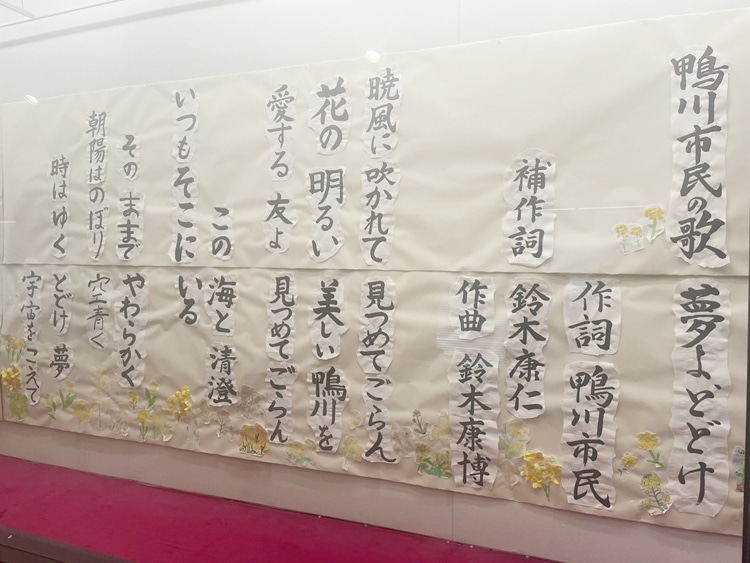 鴨川市民の歌 夢よ、とどけ
作詞 鴨川市民
補作詞 鈴木康仁
作曲 鈴木康博
暁風に吹かれて 見つめてごらん
花の明るい 美しい鴨川を
愛する友よ 見つめてごらん
この海と清澄
いつもそこにいる
そのままで やわらかく
朝陽はのぼり 空青く
時はゆく とどけ夢
宇宙をこえて